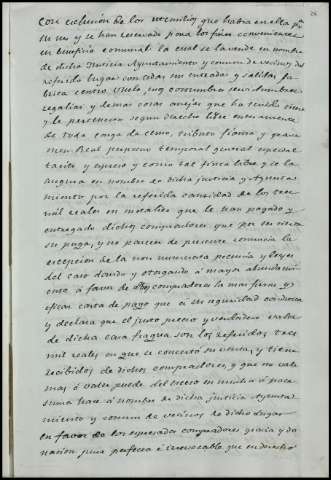 con exclusion de los utensilios que habia en ella pa
su uso y se han reservado para los fines convenientes
en beneficio comunal: la cual se la vende en nombre
de dicha Justicia Ayuntamiento y comun de vecinos del
referido lugar con todas sus entradas y salidas fa
brica centro, vuelo, uso, costumbre servidumbre
regalias y demas cosas anejas que ha tenido tiene
y le pertenecen segun derecho libre enteramente
de toda carga de censo, tributo fianza y grava
men Real perpetuo temporal general especial
tacito y expreso y como tal finca libre y se la
asegura en nombre de dicha justicia y Ayunta
miento por la referida cantidad de los tres
mil reales en metalico que le han pagado y
entregado dichos compradores que por ser cierta
su paga, y no parecer de presente renuncia la
excepcion de la non numerata pecunia y leyes
del caso dando y otorgando a mayor abundami
ento a favor de dhos compradores la mas firme y
eficaz carta de pago que a su seguridad conduzca
y declara que el justo precio y verdadero valor
de dicha casa fragua son los referidos tres
mil reales en que se concertó su venta, y tiene
recibidos de dichos compradores, y que no vale
mas y si vale puede del exceso en mucha o poca
suma hace a nombre de dicha justicia Ayunta
miento y comun de vecinos de dicho lugar
en favor de los expresados compradores gracia y do
nacion pura perfecta e irrevocable que en derecho